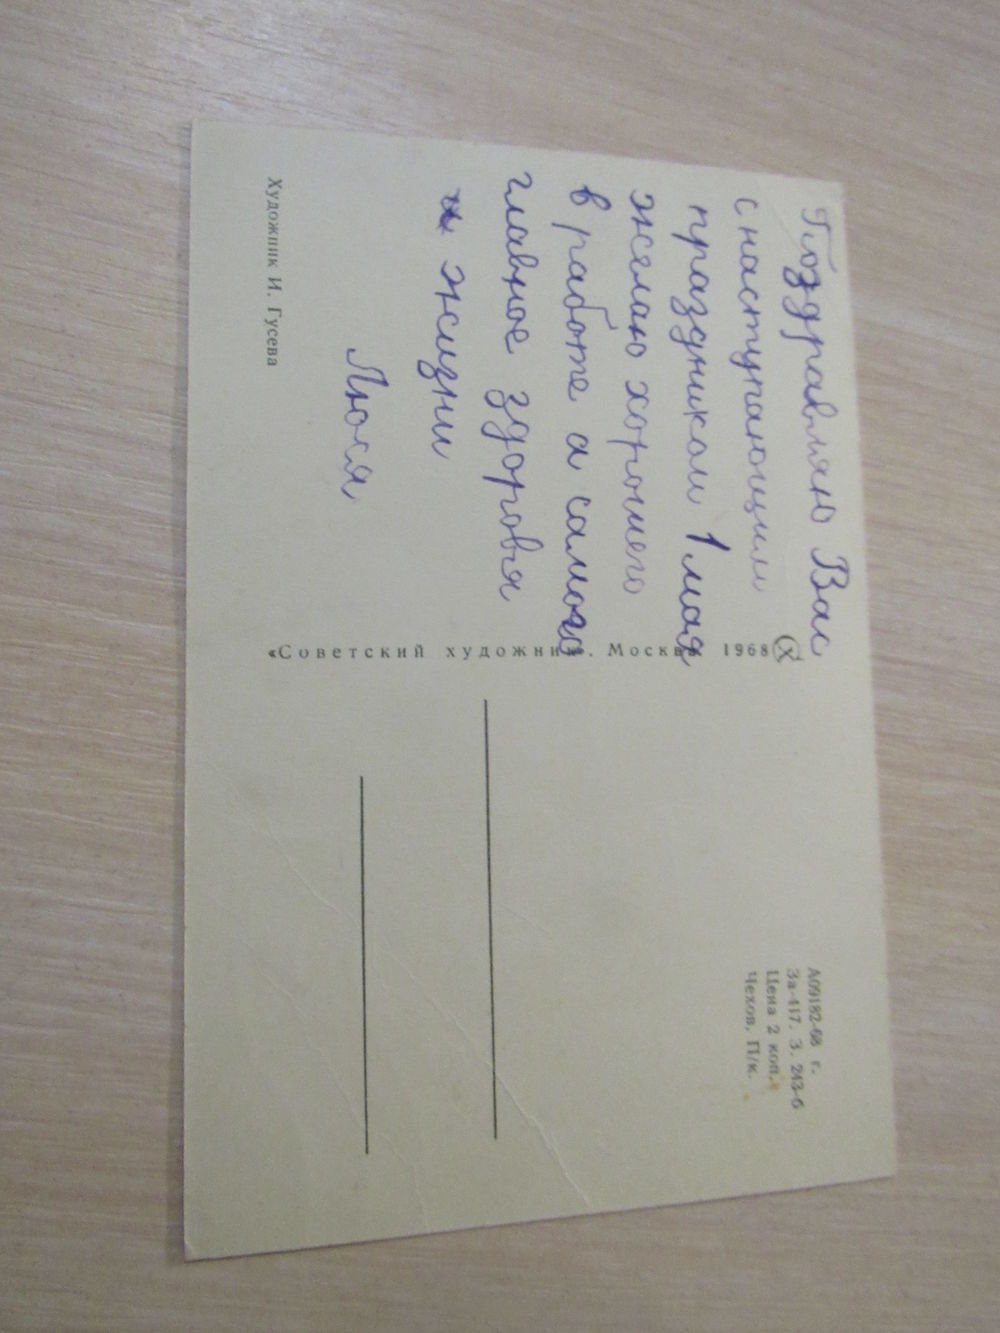 Поздравляю Вас
с наступающим
праздником 1 мая
желаю хорошего
в работе а самого
главное здоровья
и жизни
Люся
Художник И. Гусева
«Советский художник». Москва 1968
А09182-68 г.
За-417. З. 243-6
Цена 2 коп.
Чехов, П/к.